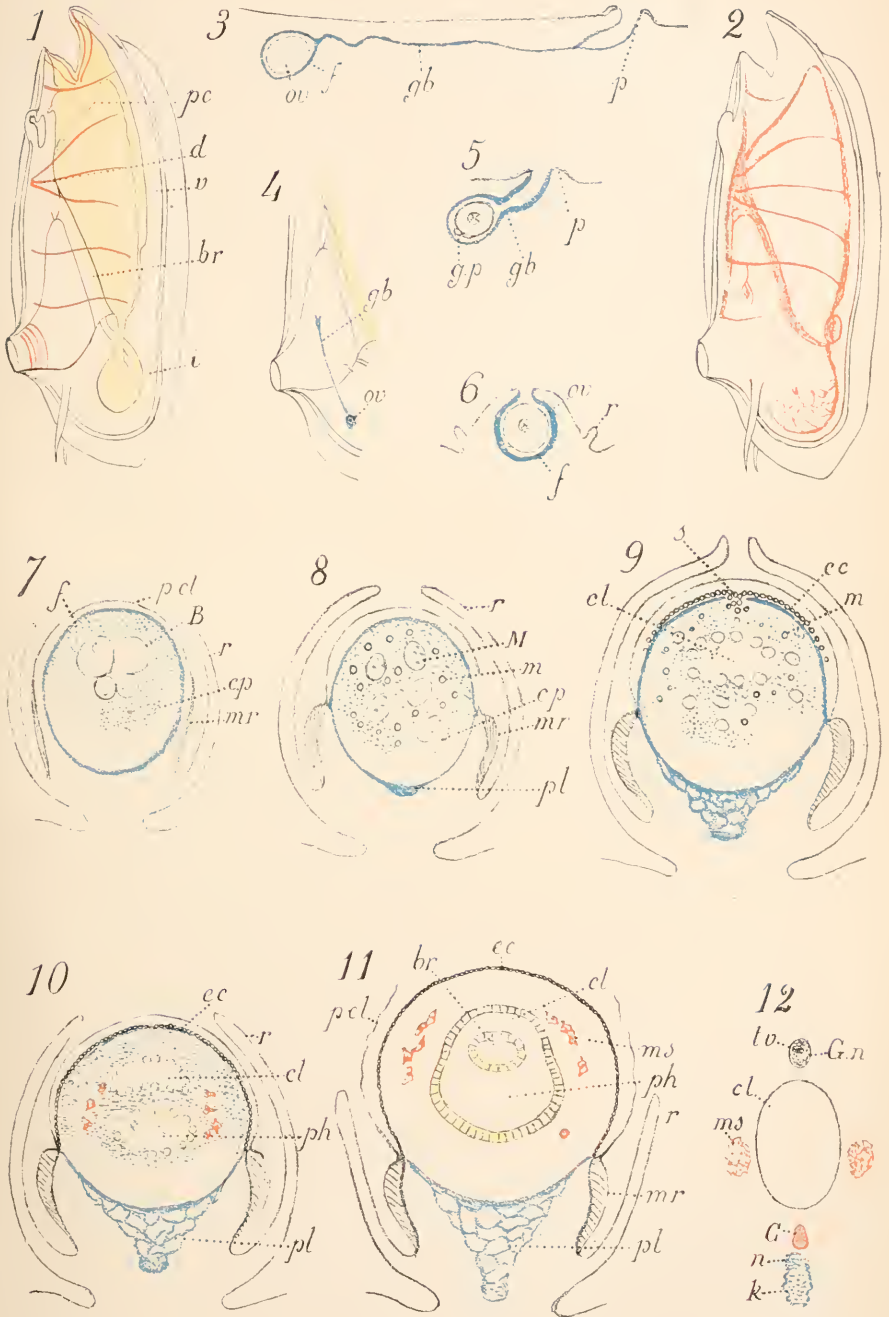 1
pc
d
v
br
i
3
ov
f
gb
p
2
4
gb
ov
5
gp
gb
p
6
ov
r
f
7
f
pcl
B
r
cp
mr
8
r
M
m
cp
mr
pl
9
s
cl
ec
m
10
ec
r
cl
ph
pl
11
br
ec
cl
pcl
ms
ph
r
mr
pl
12
lv
G.n
cl
ms
G
n
k